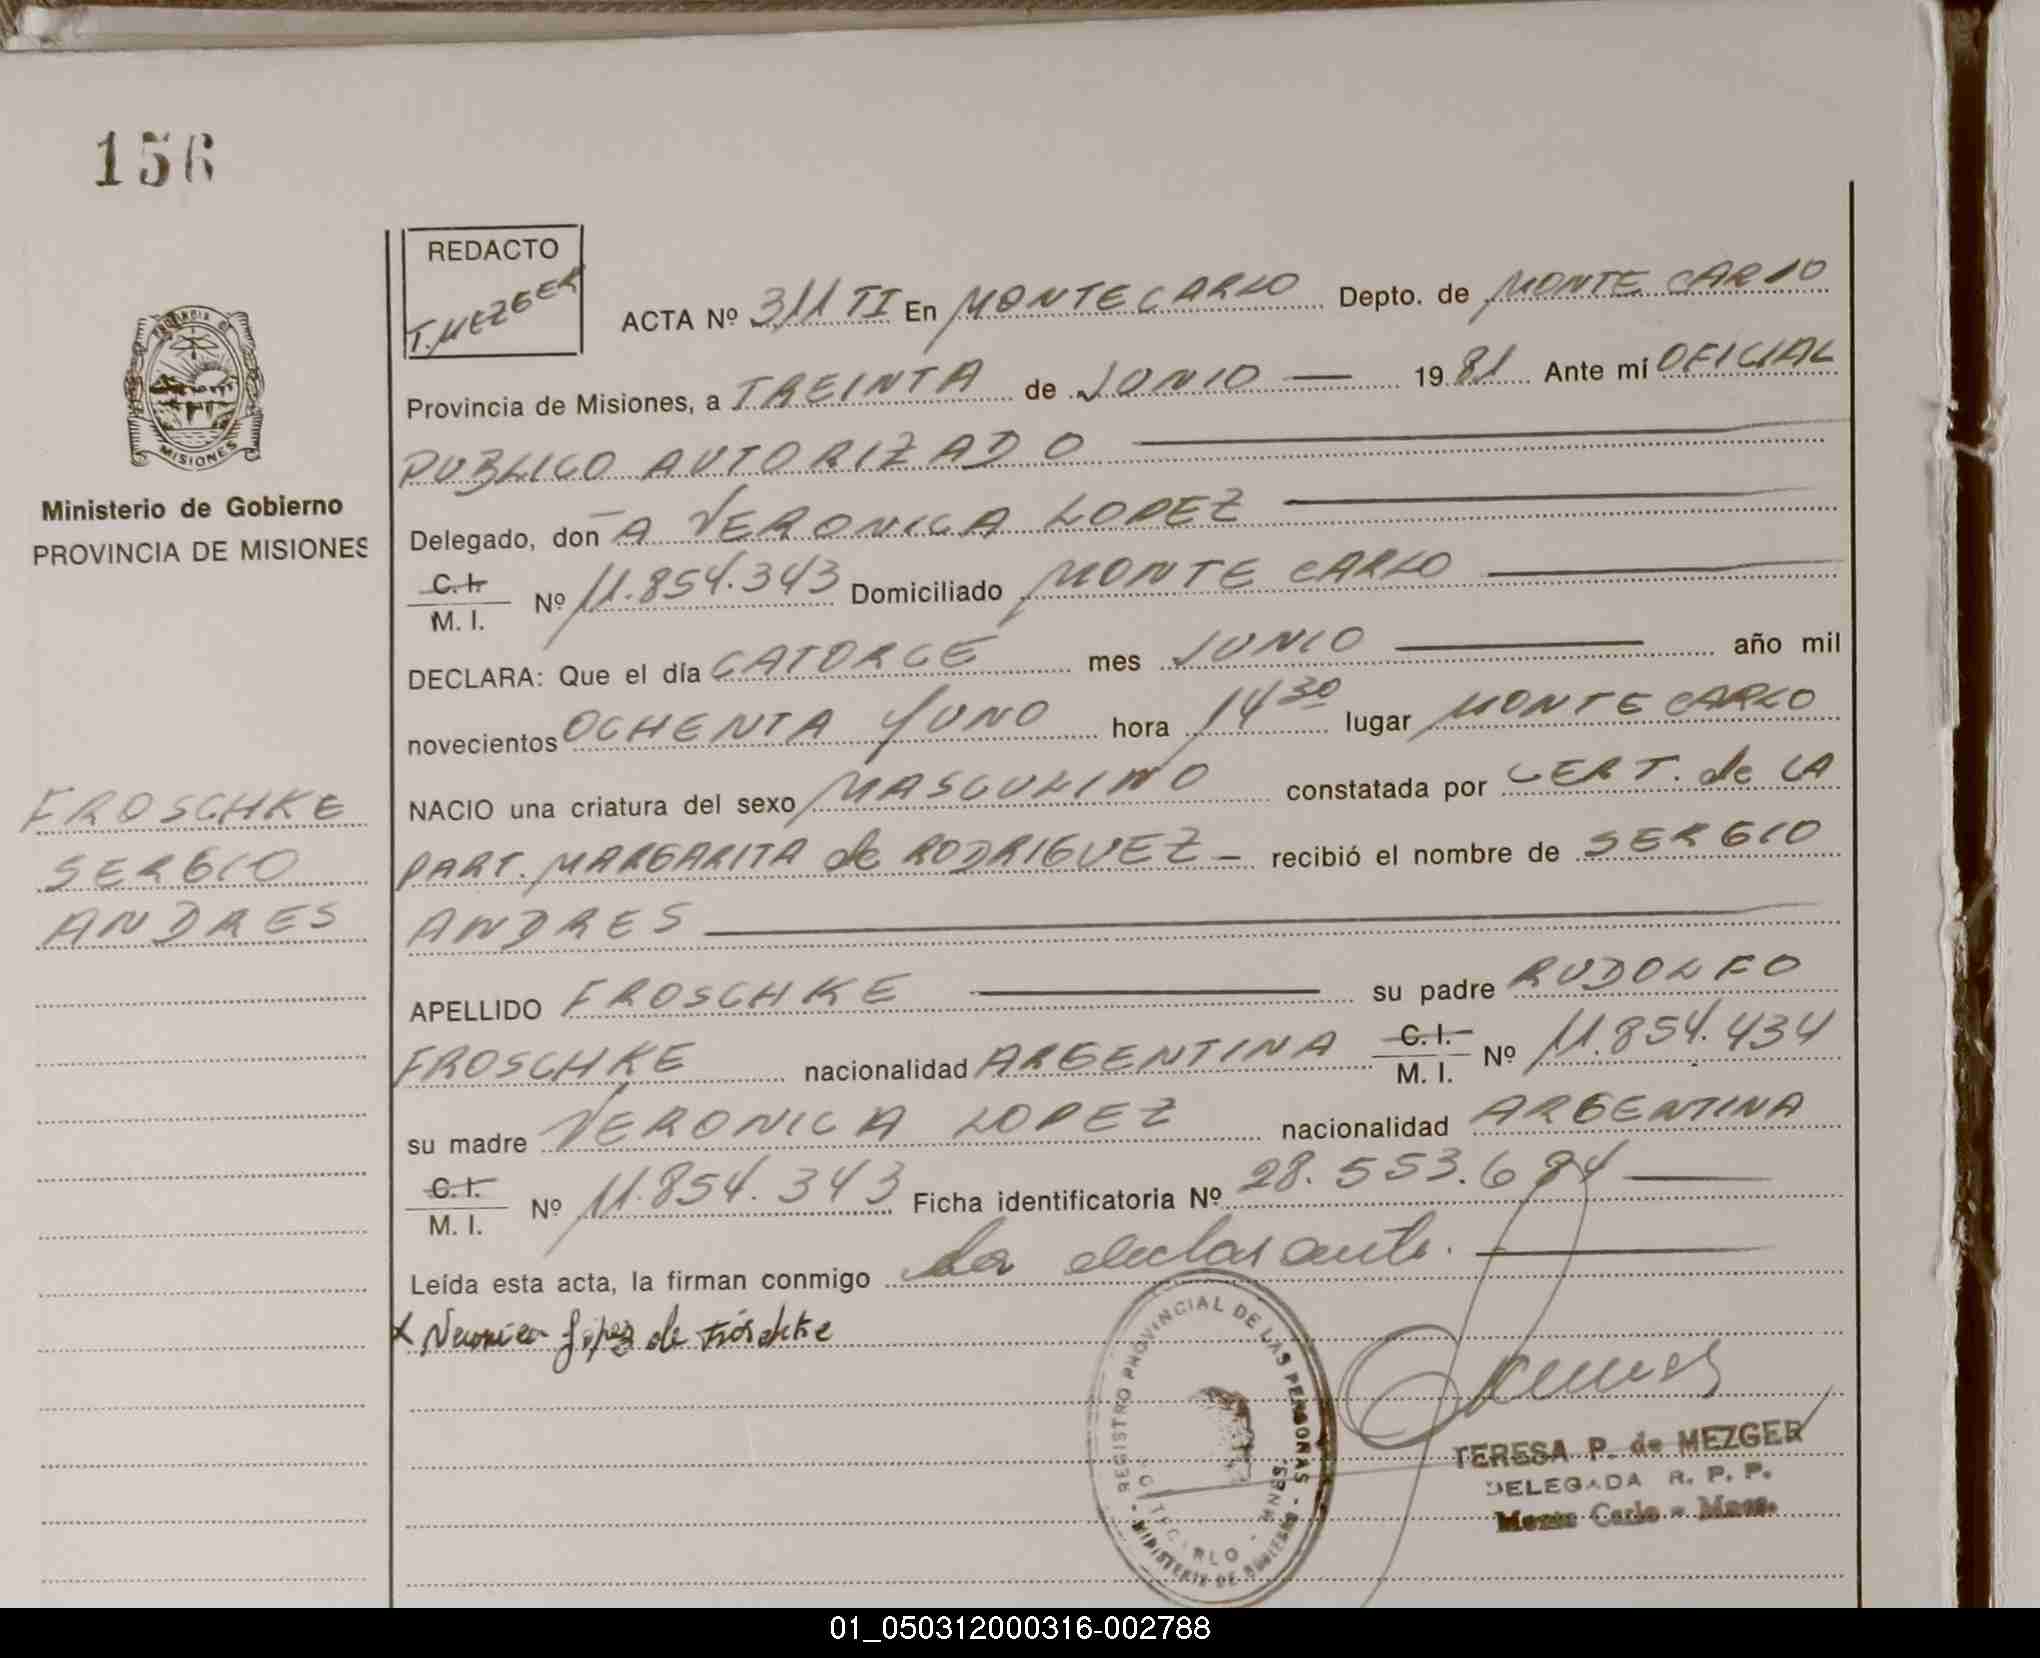 156
REDACTO
T. MEZGER
ACTA Nº 311 TI En MONTECARLO Depto. de MONTE CARLO
Provincia de Misiones, a TREINTA de JUNIO — 19 81 Ante mí OFICIAL
PUBLICO AUTORIZADO
PROVINCIA DE
MISIONES
Ministerio de Gobierno
PROVINCIA DE MISIONES
Delegado, don A VERONICA LOPEZ
C. I. / M. I. Nº 11.854.343 Domiciliado MONTE CARLO
DECLARA: Que el día CATORCE mes JUNIO año mil
novecientos OCHENTA YUNO hora 14 30 lugar MONTE CARLO
FROSCHKE
SERGIO
ANDRES
NACIO una criatura del sexo MASCULINO constatada por CERT. de LA
PART. MARGARITA de RODRIGUEZ — recibió el nombre de SERGIO
ANDRES
APELLIDO FROSCHKE su padre RUDOLFO
FROSCHKE nacionalidad ARGENTINA C. I. / M. I. Nº 11.854.434
su madre VERONICA LOPEZ nacionalidad ARGENTINA
C. I. / M. I. Nº 11.854.343 Ficha identificatoria Nº 28.553.694
Leída esta acta, la firman conmigo La declarante.
x Veronica López de Fröschke
REGISTRO PROVINCIAL DE LAS PERSONAS - MINISTERIO DE GOBIERNO
TERESA P. de MEZGER
DELEGADA R. P. P.
Monte Carlo - Mnes.
01_050312000316-002788